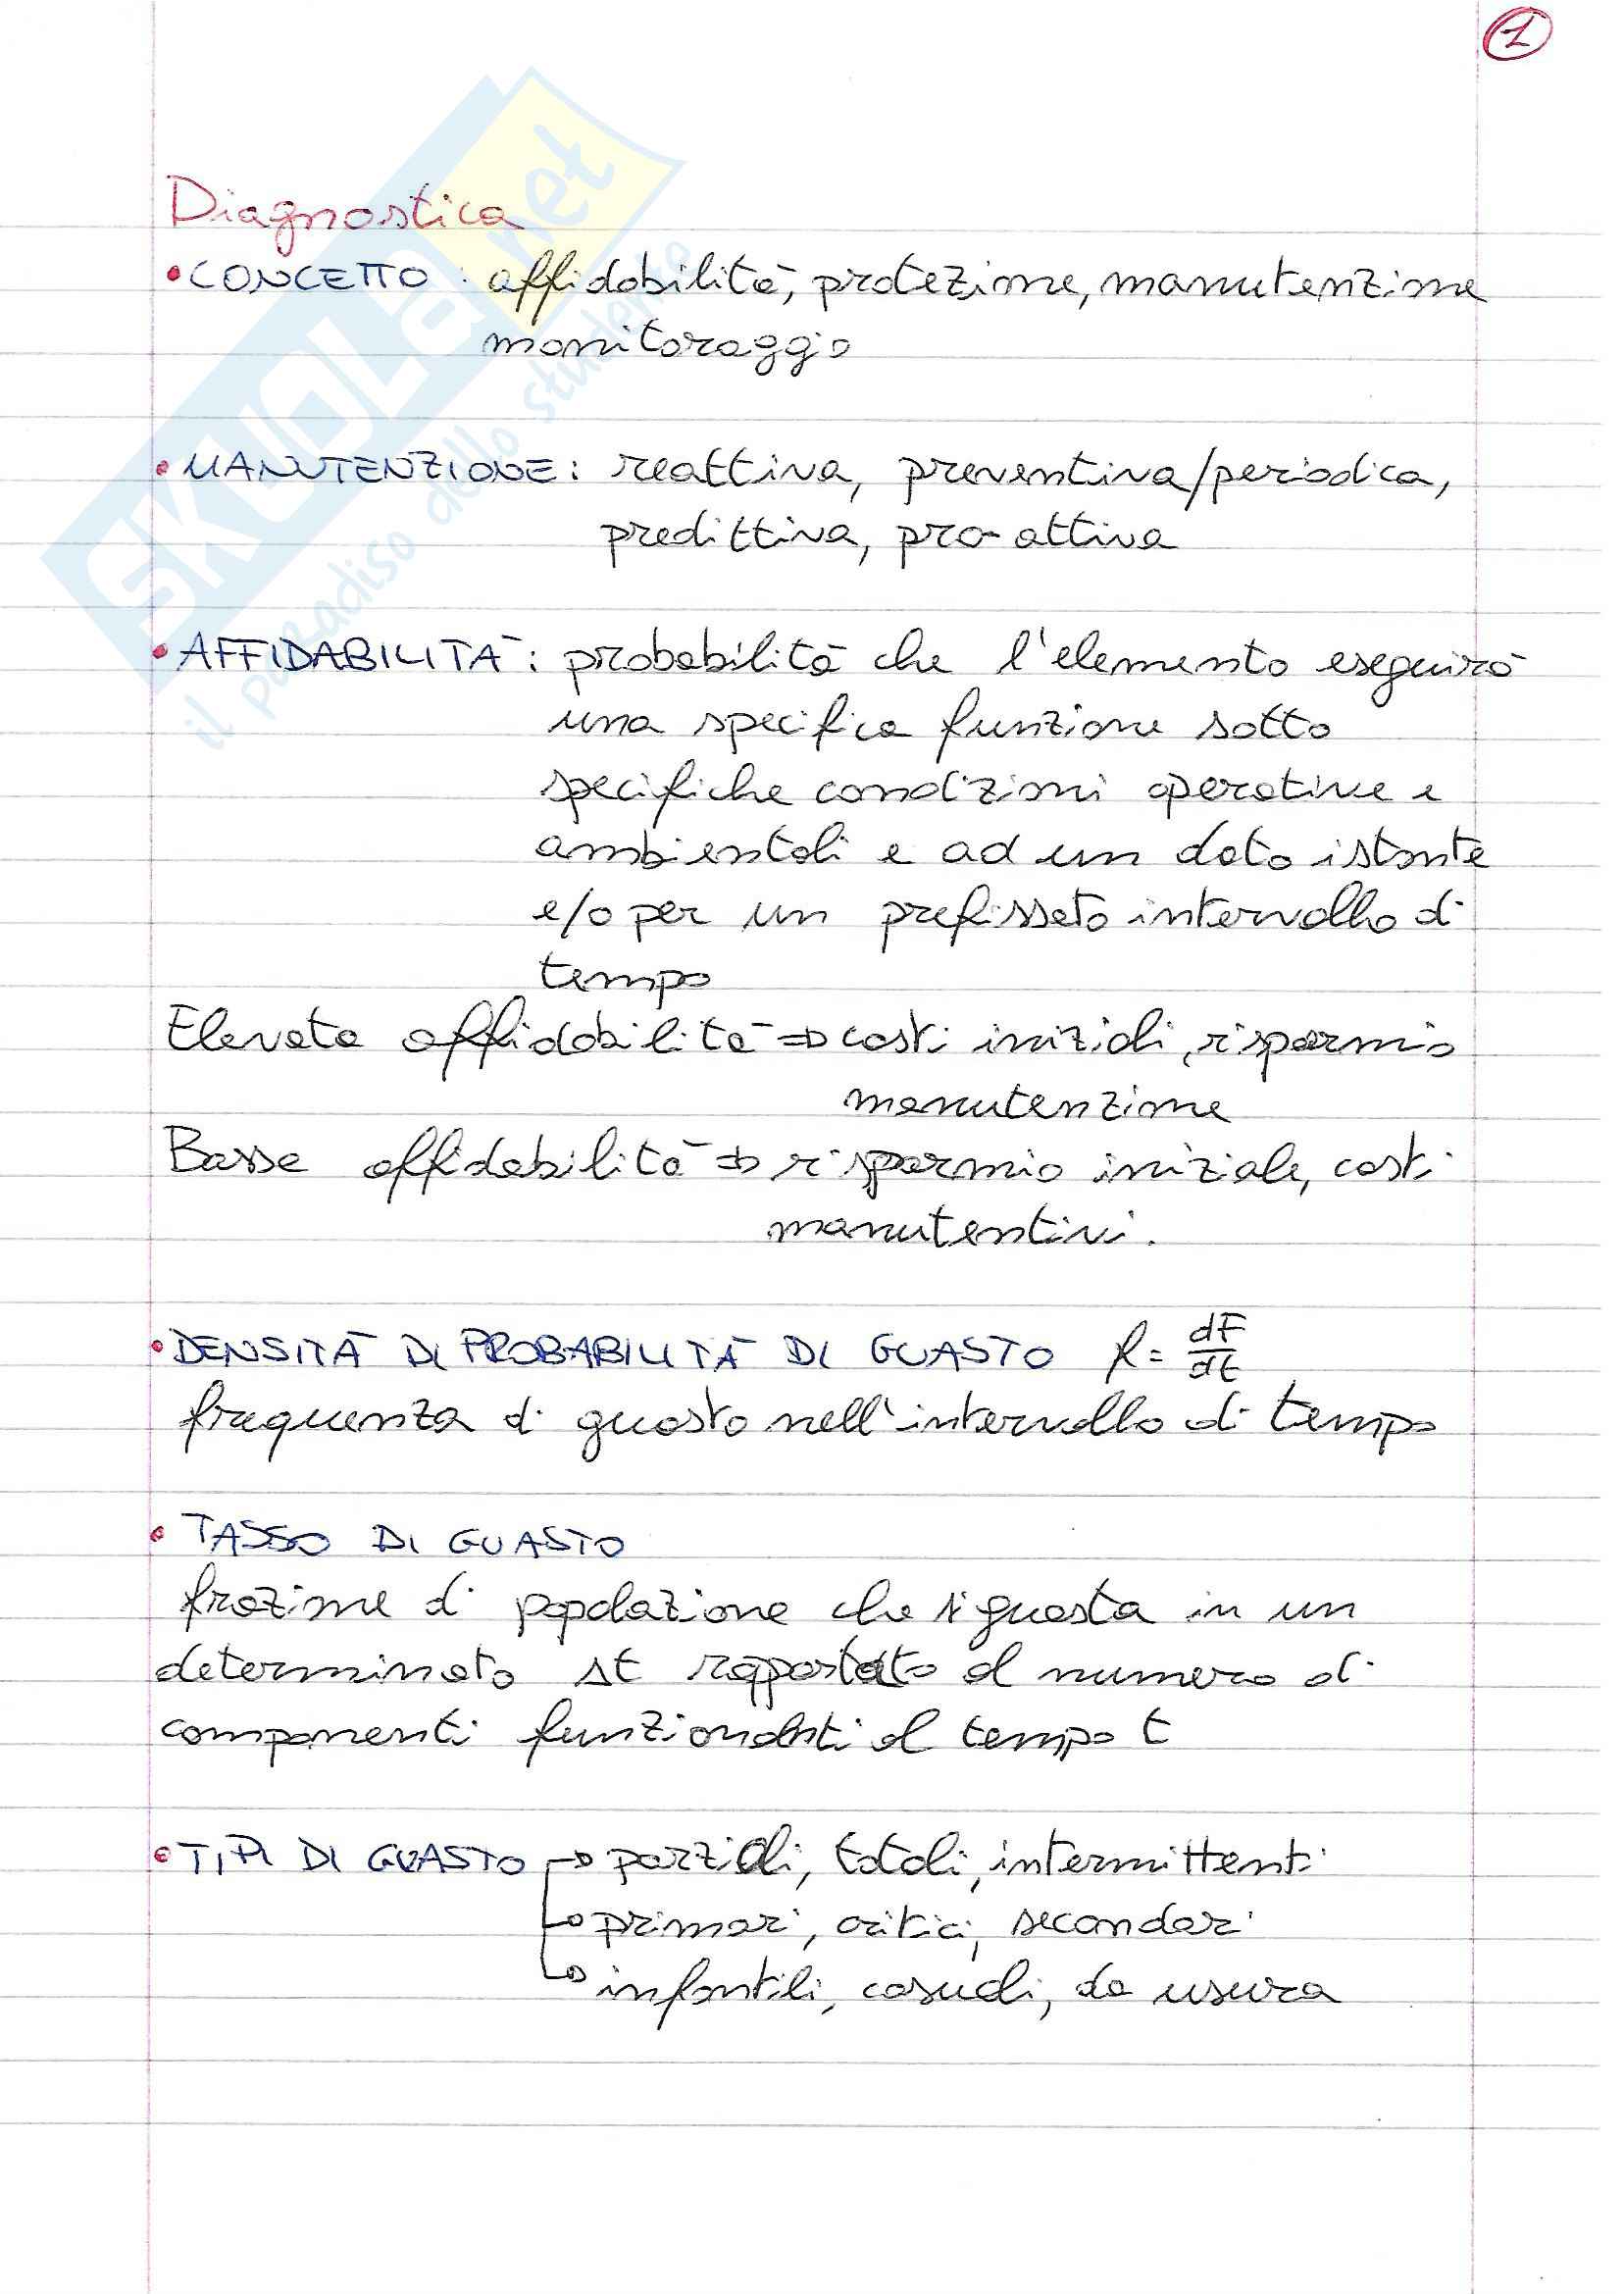 1
Diagnostica
• CONCETTO: affidabilità, protezione, manutenzione
monitoraggio
• MANUTENZIONE: reattiva, preventiva/periodica,
predittiva, pro-attiva
• AFFIDABILITÀ: probabilità che l'elemento eseguirà
una specifica funzione sotto
specifiche condizioni operative e
ambientali e ad un dato istante
e/o per un prefissato intervallo di
tempo
Elevata affidabilità ⇒ costi iniziali, risparmio
manutenzione
Bassa affidabilità ⇒ risparmio iniziale, costi
manutentivi.
• DENSITÀ DI PROBABILITÀ DI GUASTO f = dF/dt
frequenza di guasto nell'intervallo di tempo
• TASSO DI GUASTO
frazione di popolazione che si guasta in un
determinato Δt rapportato al numero di
componenti funzionanti al tempo t
• TIPI DI GUASTO → parziali, totali, intermittenti
→ primari, critici, secondari
→ infantili, casuali, da usura
SKUOLA.net
il paradiso dello studente